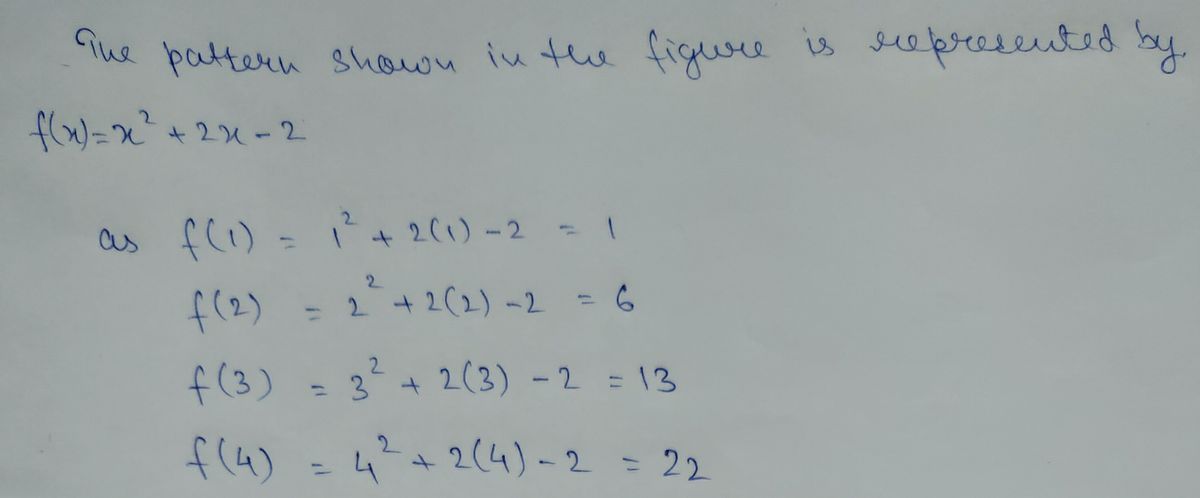 The pattern shown in the figure is represented by
f(x)=x² + 2x - 2
as f(1) = 1² + 2(1) - 2 = 1
f(2) = 2² + 2(2) - 2 = 6
f(3) = 3² + 2(3) - 2 = 13
f(4) = 4² + 2(4) - 2 = 22